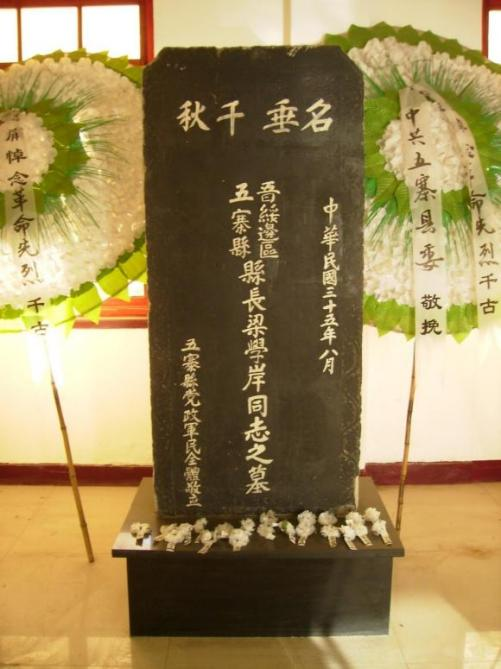 名垂千秋
中華民國三十五年八月
晋綏邊區
五寨縣
縣長梁學岸同志之墓
五寨縣党政軍民全體敬立
中共五寨县委 敬挽
革命先烈千古
屏悼念革命先烈 千古